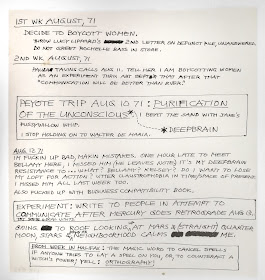 1ST WK AUGUST, 71
DECIDE TO BOYCOTT WOMEN.
THROW LUCY LIPPARD'S 2ND LETTER ON DEFUNCT PILE, UNANSWERED.
DO NOT GREET ROCHELLE BASS IN STORE.
2ND WK, AUGUST, 71
TAKING CALLS AUG 11. TELL HER I AM BOYCOTTING WOMEN
AS AN EXPERIMENT THRU SEPT & THAT AFTER THAT
"COMMUNICATION WILL BE BETTER THAN EVER."
PEYOTE TRIP AUG 10 71: PURIFICATION
OF THE UNCONSCIOUS* I BEAT THE SAND WITH JANE'S
PUSSYWILLOW WHIP.
I STOP HOLDING ON TO WALTER DE MARIA.
*DEEPBRAIN
AUG 12 71
IM FUCKIN UP BAD, MAKIN MISTAKES. ONE HOUR LATE TO MEET
BELLAMY HERE, I MISSED HIM (HE LEAVES NOTE) IT'S MY DEEPBRAIN
RESISTANCE TO.... WHAT? BELLAMY? KELSEY? DO I WANT TO LOSE
MY LOFT FOR ACTION? UTTER CLAUSTROPHOBIA IN TIME/SPACE OF PRESENT
I MISSED HIM ALL LAST WEEK TOO.
ALSO FUCKED UP WITH BUSINESS COMPATIBILITY BOOK.
EXPERIMENT: WRITE TO PEOPLE IN ATTEMPT TO
COMMUNICATE AFTER MERCURY GOES RETROGRADE AUG 13.
GOING TO ROOF LOOKING AT MARS & (STRAIGHT) QUARTER
MOON, STARS & NEIGHBORHOOD CALMS ME.
FROM WEEK IN HALIFAX: THE MAGIC WORD TO CANCEL SPELLS
IF ANYONE TRIES TO CAST A SPELL ON YOU, OR TO COUNTERACT A
WITCH'S POWER, YELL: ORTHOGRAPHY!